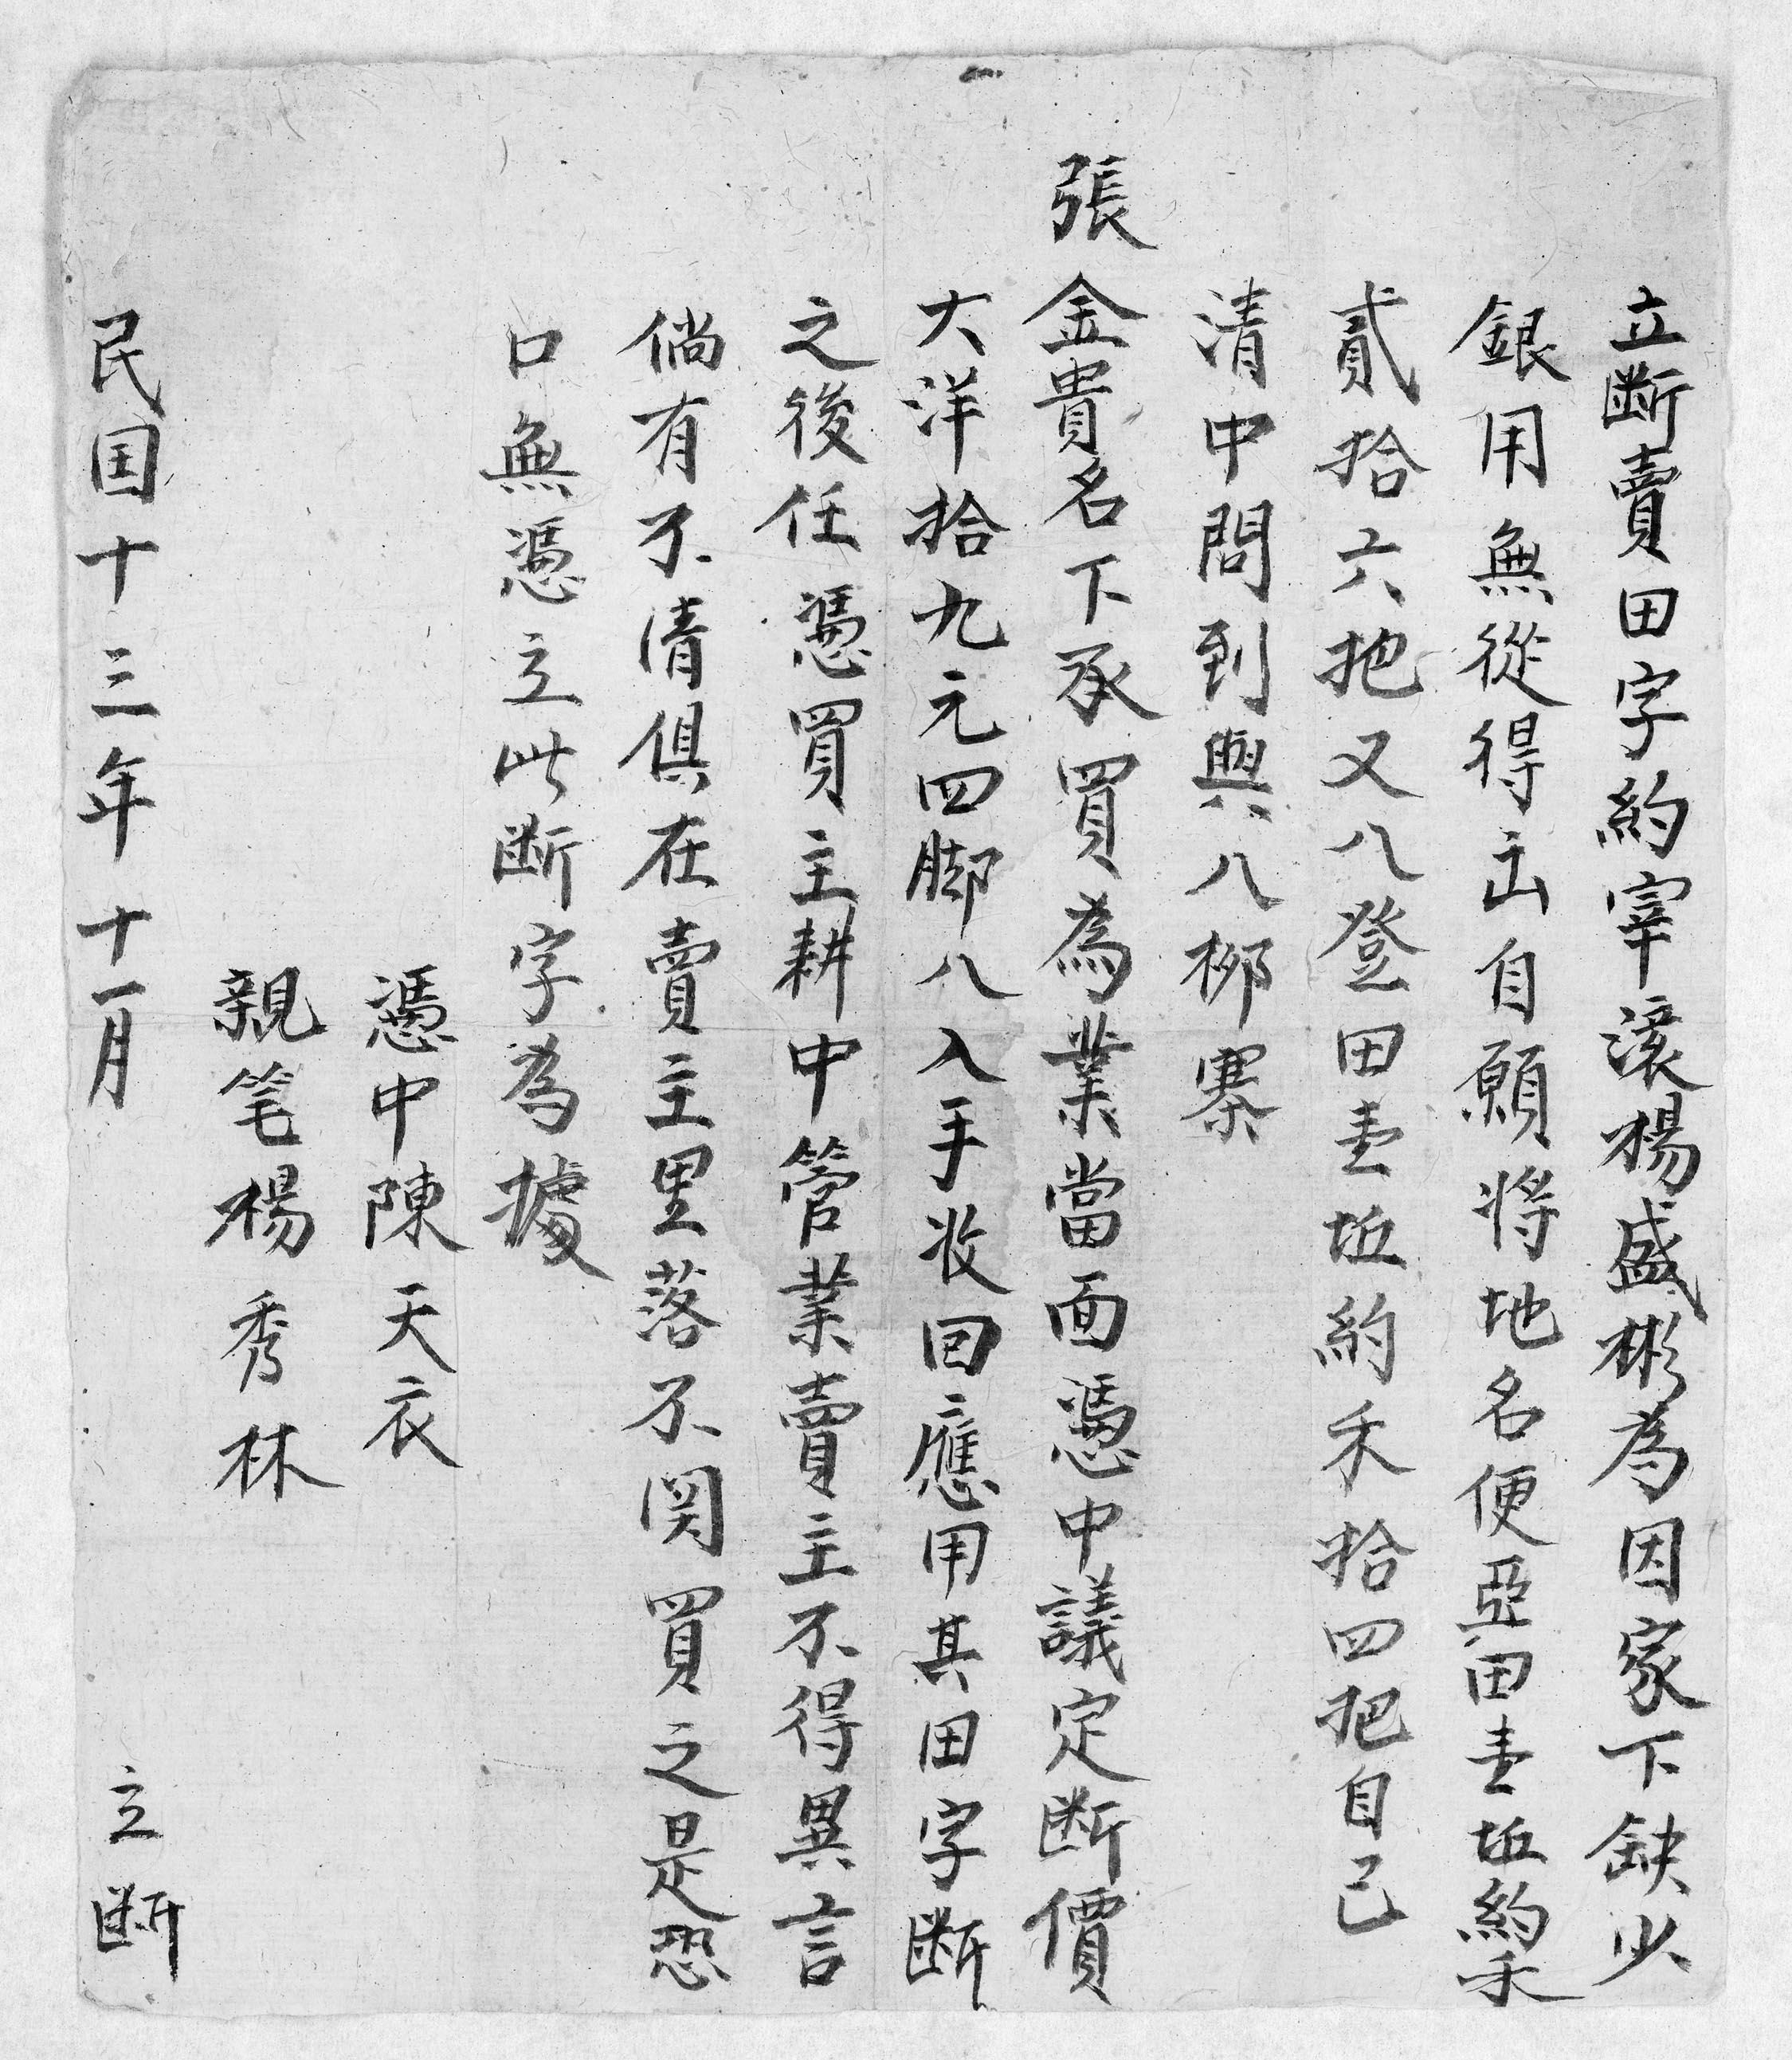 立断賣田字約宰滾楊盛彬為因家下缺少
銀用無從得出自願將地名便亞田壹坵約禾
貳拾六把又八登田壹坵約禾拾四把自己
清中問到與八柳寨
張金貴名下承買為業當面憑中議定断價
大洋拾九元四脚八入手收回應用其田字断
之後任憑買主耕中管業賣主不得異言
倘有不清俱在賣主里落不関買之是恐
口無憑立此断字為據
憑中陳天衣
親笔楊秀林
民国十三年十一月 立断